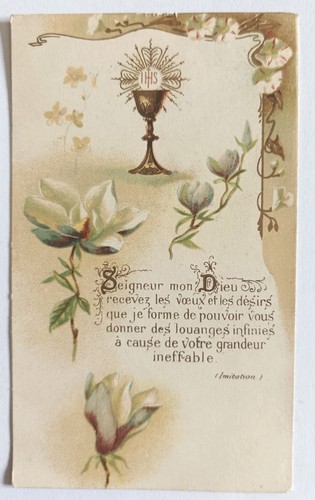 IHS
Seigneur mon Dieu
recevez les vœux et les désirs
que je forme de pouvoir vous
donner des louanges infinies
à cause de votre grandeur
ineffable.
(Imitation)